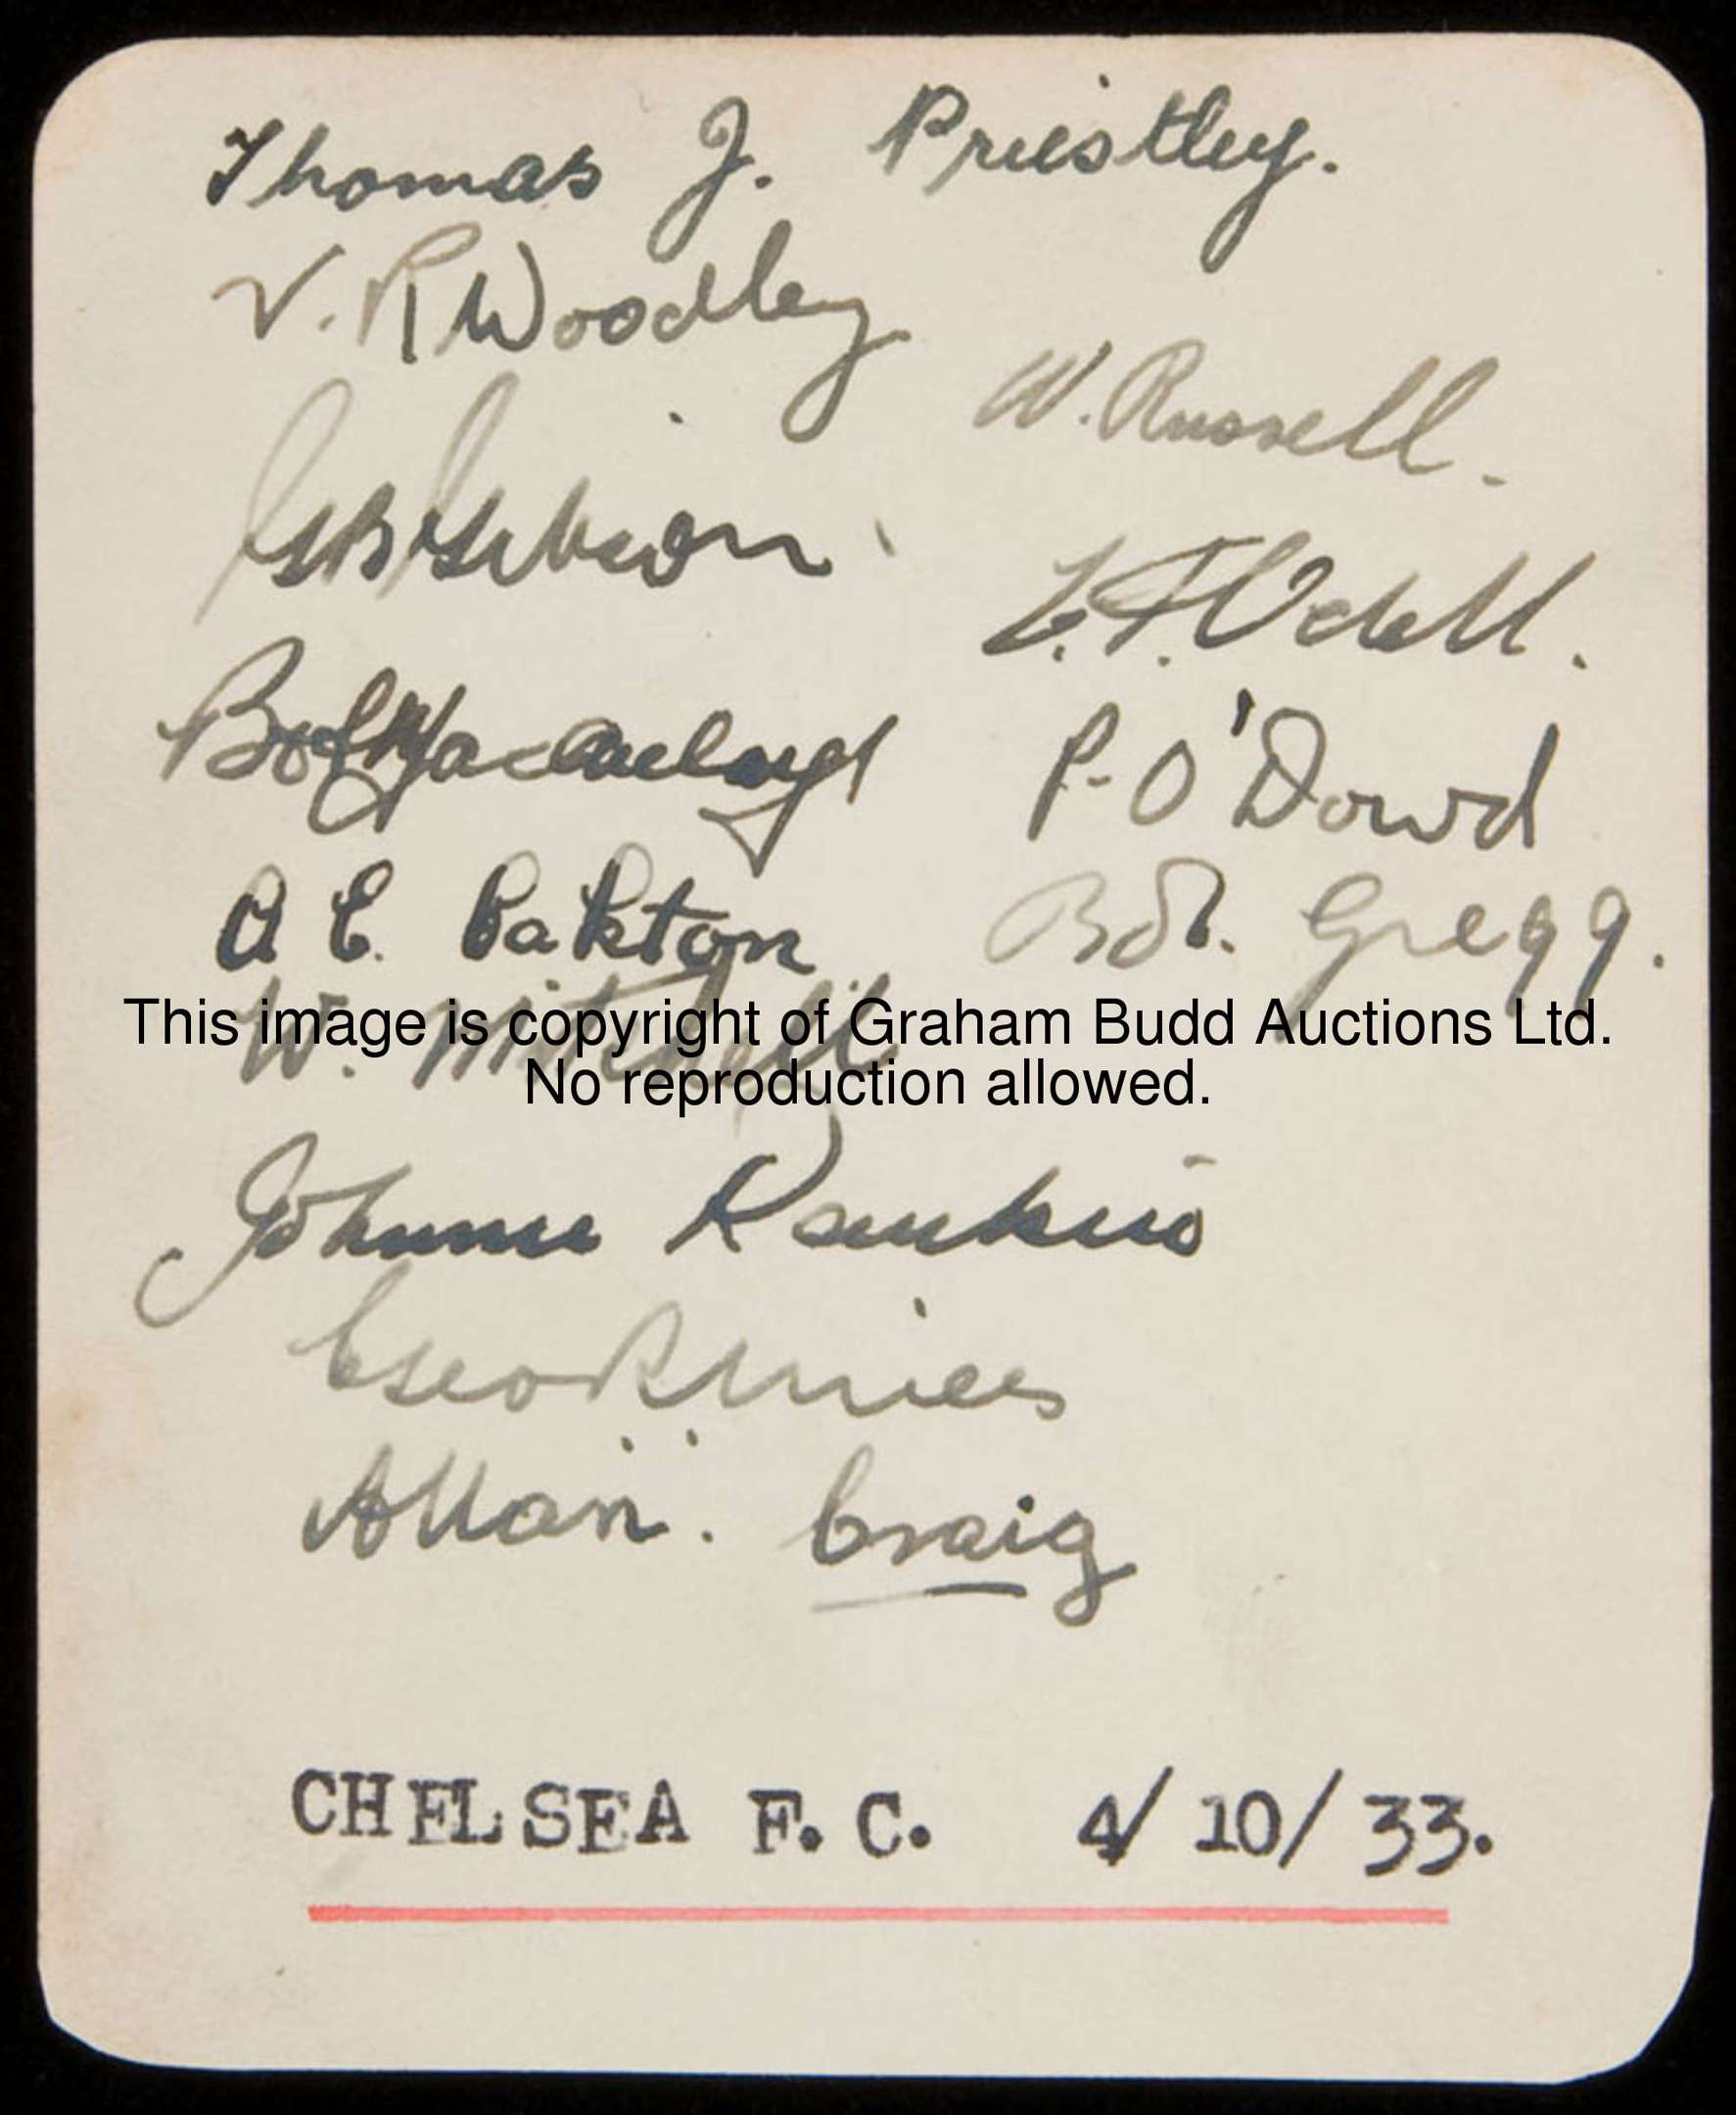 Thomas J. Priestley.
V. R Woodley
W. Russell.
G S Gibson
L. F. Odell.
Bob Macaulay
P. O'Dowd
A C. Oakton
Bob. Gregg.
W. Mitchell
This image is copyright of Graham Budd Auctions Ltd.
No reproduction allowed.
Johnnie Rankin
Geo R Mills
Allan. Craig
CHELSEA F. C. 4/10/33.